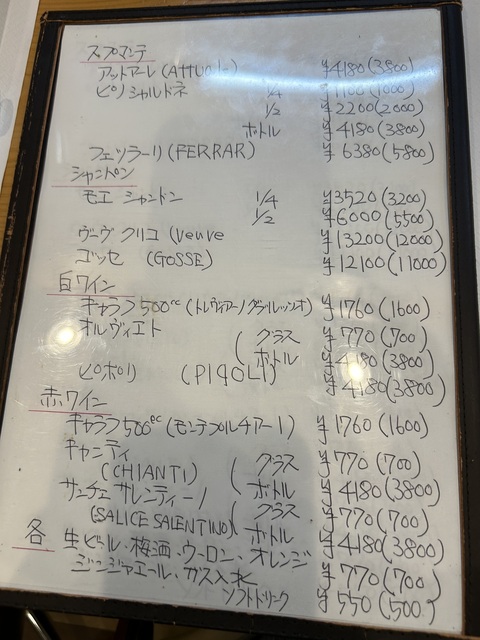 スプマンテ
アットアーレ (Attual ¥4180(3800)
ピノ シャルドネ 1/4 ¥1100(1000)
1/2 ¥2200(2000)
ボトル ¥4180(3800)
フェッラーリ(FERRAR) ¥6380(5800)
シャンパン
モエ シャンドン 1/4 ¥3520(3200)
1/2 ¥6000(5500)
ヴーヴ クリコ (Veuve ¥13200(12000)
ゴッセ (GOSSE) ¥12100(11000)
白ワイン
キャラフ500cc(トレヴィアーノ ダブルッツオ) ¥1760(1600)
オルヴィエト ( グラス ¥770(700)
ボトル ¥4180(3800)
ピポリ (PIQOLI) ¥4180(3800)
赤ワイン
キャラフ500cc(モンテプルチアーノ) ¥1760(1600)
キャンティ
(CHIANTI) ( グラス ¥770(700)
サンチェ サレンティーノ ボトル ¥4180(3800)
(SALICE SALENTINO) ( グラス ¥770(700)
ボトル ¥4180(3800)
各 生ビール・梅酒・ウーロン・オレンジ
ジンジャエール・ガス入水 ¥770(700)
ソフトドリンク ¥550(500)